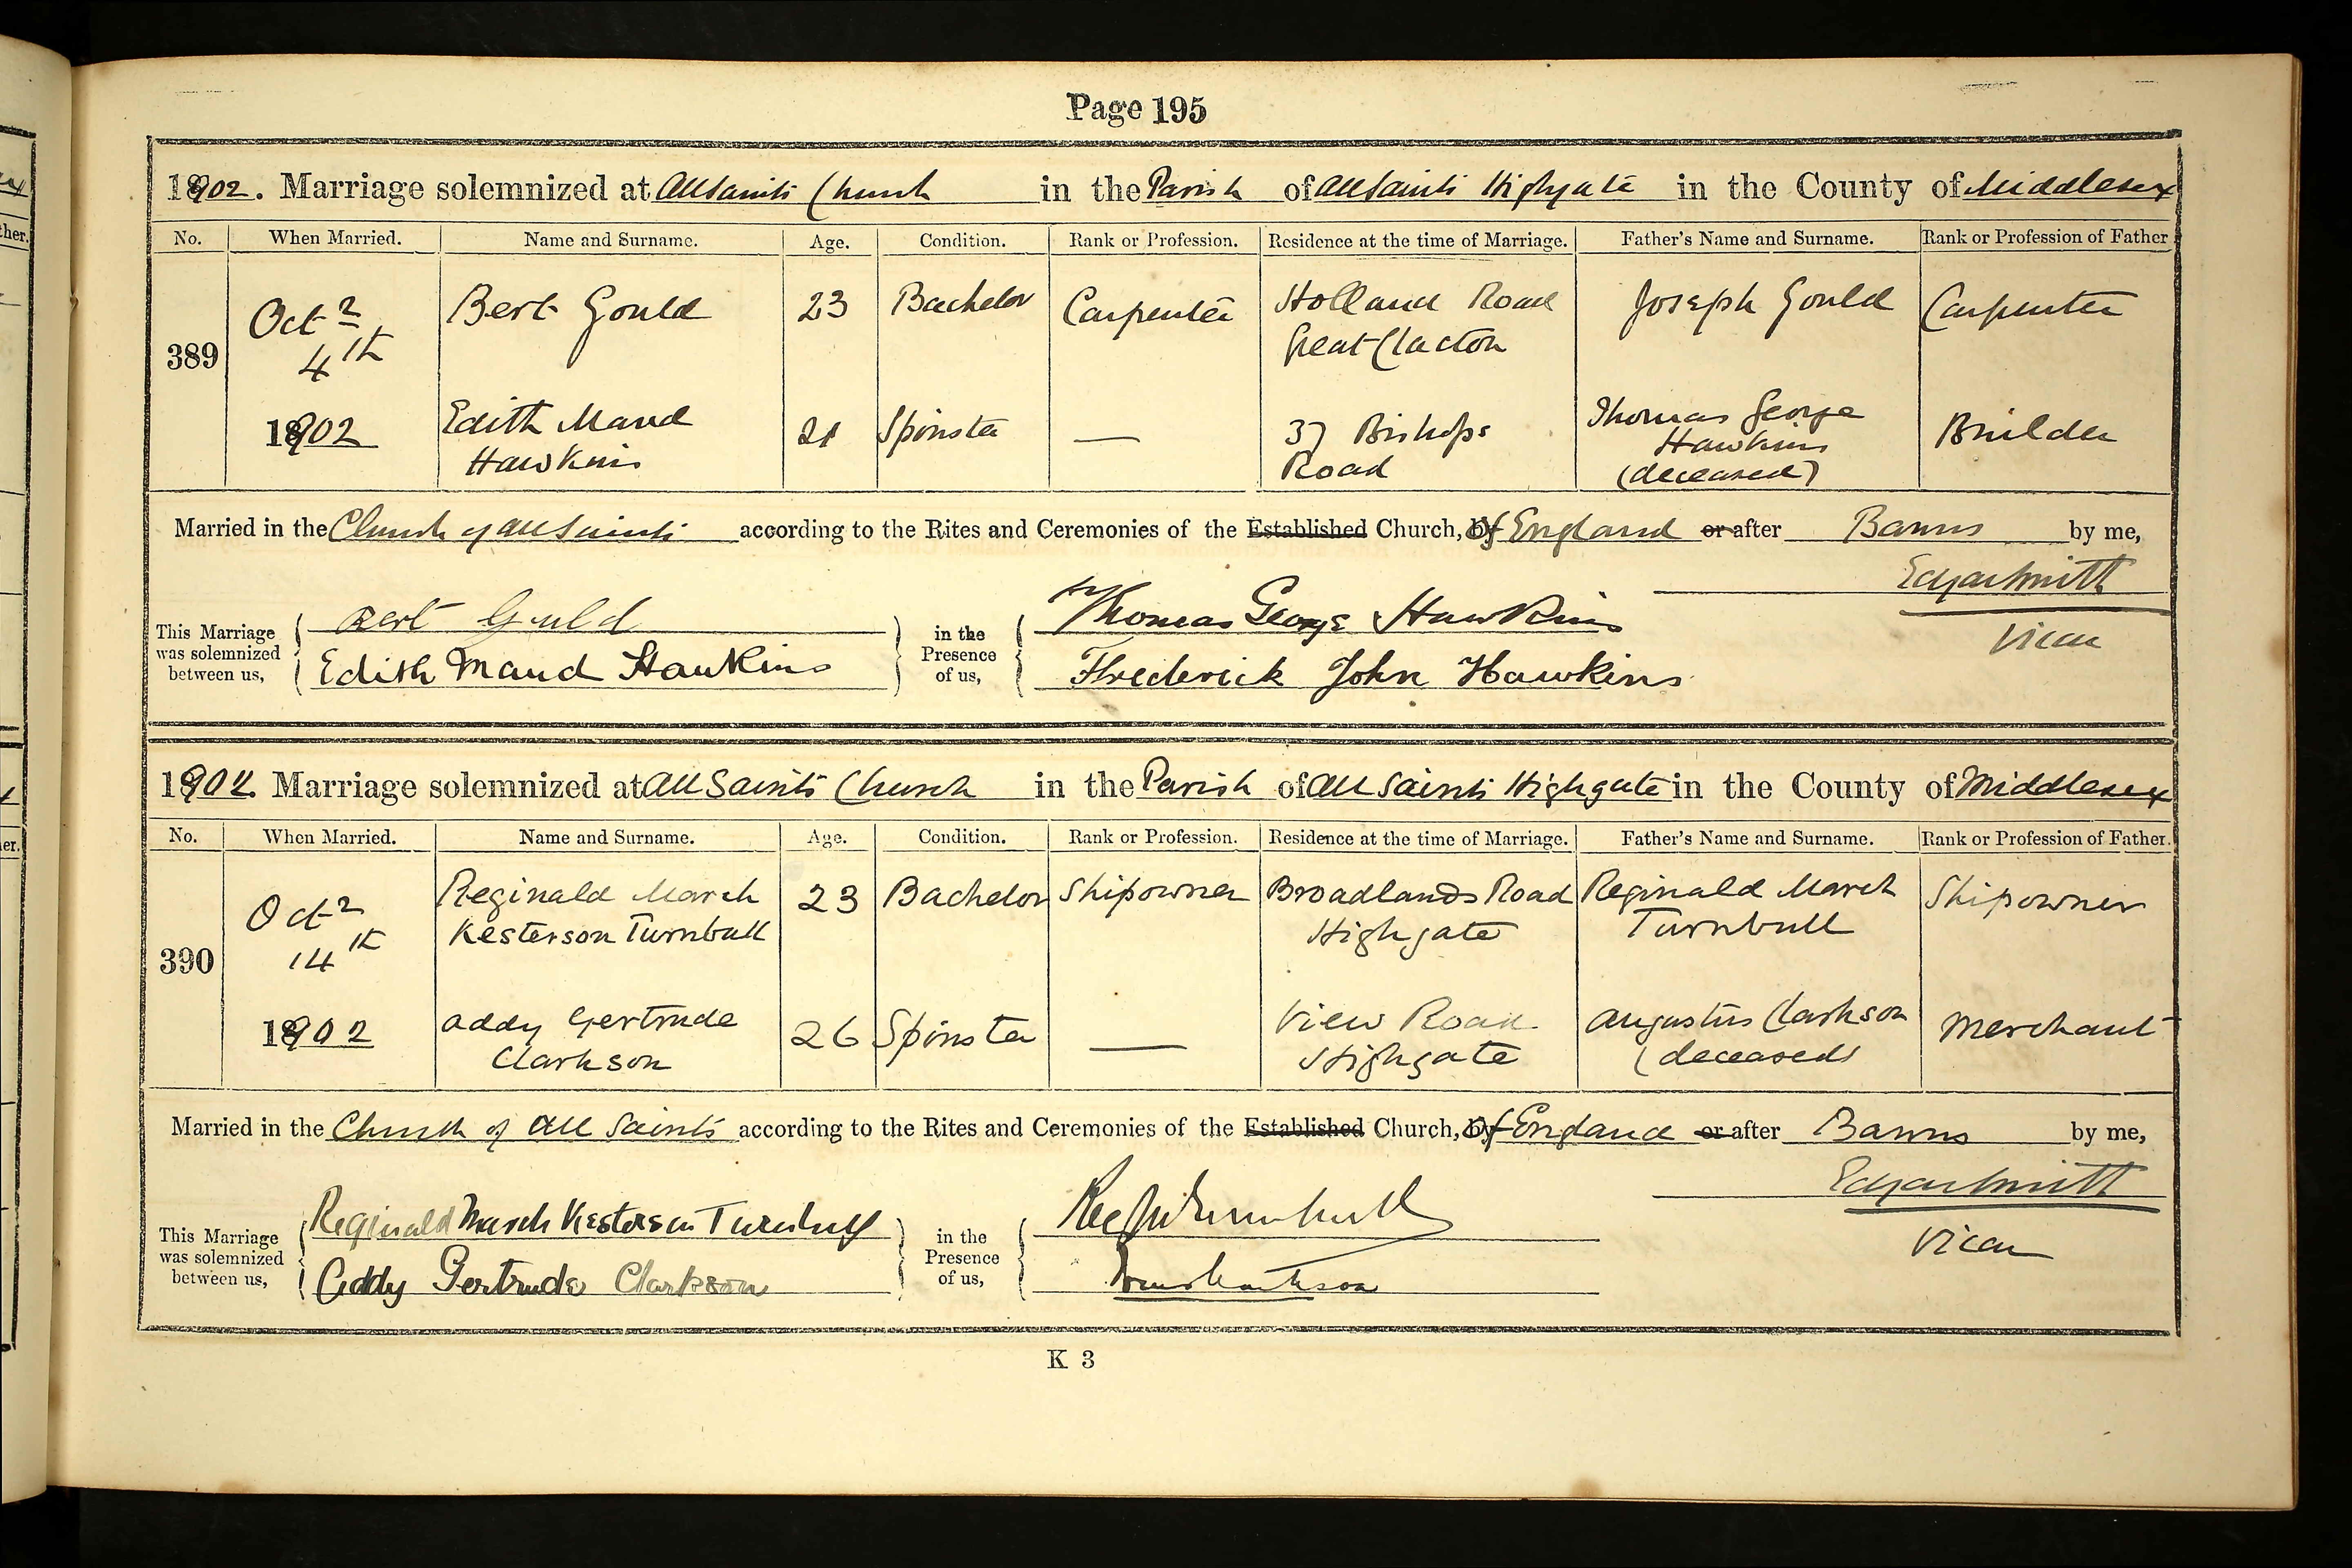 Page 195
1902. Marriage solemnized at All Saints Church in the Parish of All Saints Highgate in the County of Middlesex
No. When Married. Name and Surname. Age. Condition. Rank or Profession. Residence at the time of Marriage. Father's Name and Surname. Rank or Profession of Father
389 Octr 4th 1902
Bert Gould 23 Bachelor Carpenter Holland Road Great Clacton Joseph Gould Carpenter
Edith Maud Hawkins 21 Spinster — 37 Bishops Road Thomas George Hawkins (deceased) Builder
Married in the Church of All Saints according to the Rites and Ceremonies of the Established Church, of England or after Banns by me,
Edgar Smith
Vicar
This Marriage was solemnized between us,
Bert Gould
Edith Maud Hawkins
in the Presence of us,
Thomas George Hawkins
Frederick John Hawkins
1902. Marriage solemnized at All Saints Church in the Parish of All Saints Highgate in the County of Middlesex
No. When Married. Name and Surname. Age. Condition. Rank or Profession. Residence at the time of Marriage. Father's Name and Surname. Rank or Profession of Father.
390 Octr 14th 1902
Reginald March Kesterson Turnbull 23 Bachelor Shipowner Broadlands Road Highgate Reginald March Turnbull Shipowner
Addy Gertrude Clarkson 26 Spinster — View Road Highgate Augustus Clarkson (deceased) Merchant
Married in the Church of All Saints according to the Rites and Ceremonies of the Established Church, of England or after Banns by me,
Edgar Smith
Vicar
This Marriage was solemnized between us,
Reginald March Kesterson Turnbull
Addy Gertrude Clarkson
in the Presence of us,
Turnbull
Clarkson
K 3